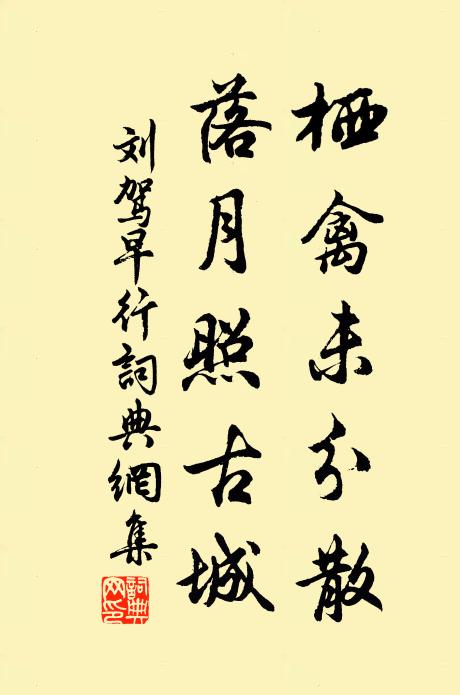 栖禽未分散
落月照古城
刘驾早行詞典網集
詞典
网印